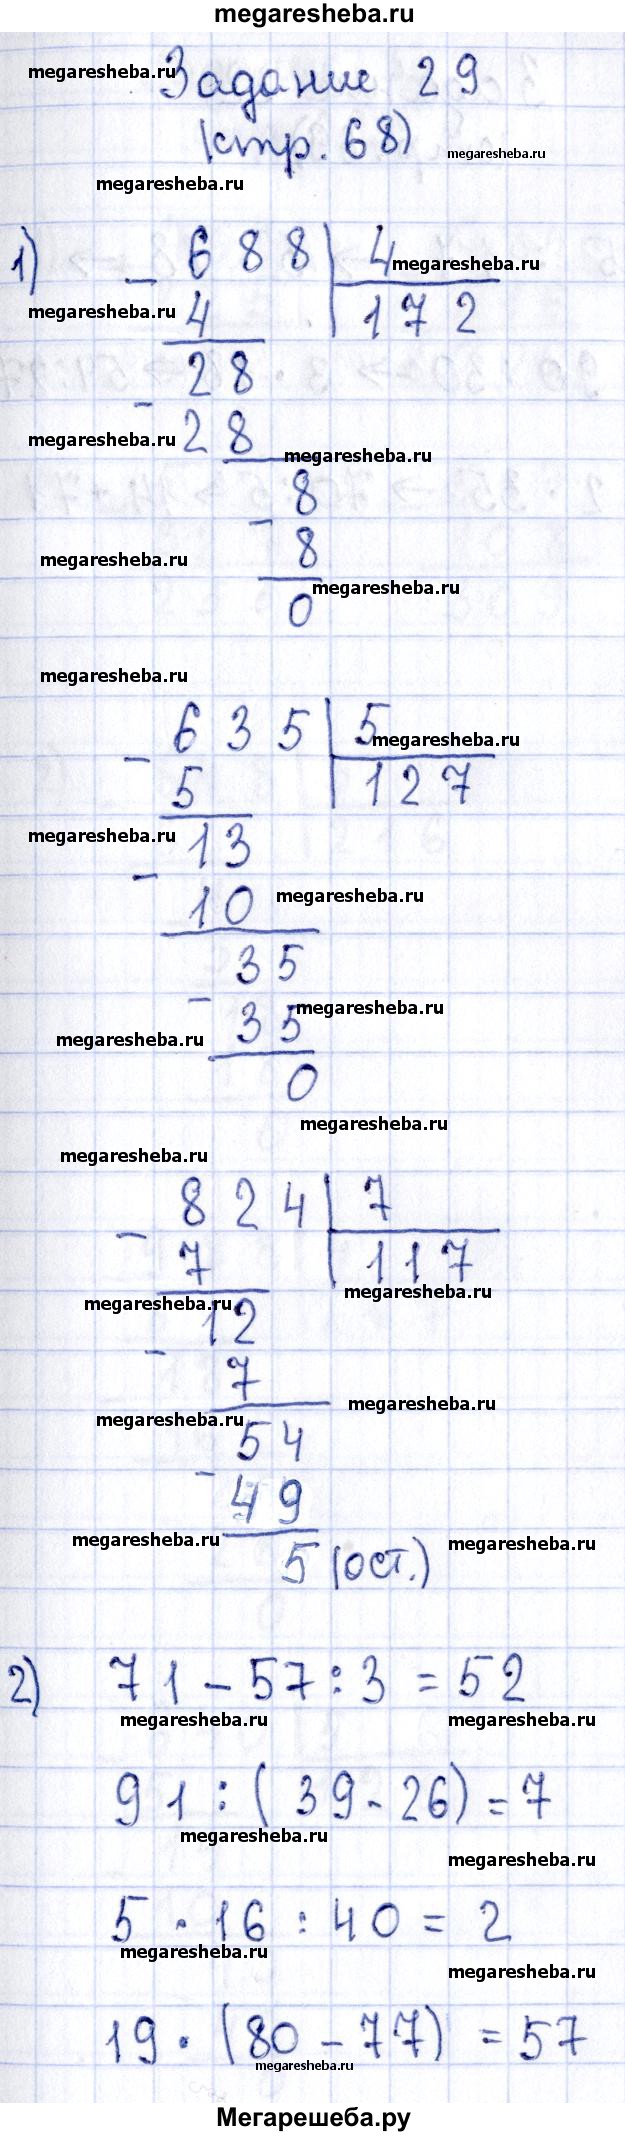 megaresheba.ru
megaresheba.ru
Задание 29
(стр. 68)
megaresheba.ru
megaresheba.ru
1) - 688 | 4
megaresheba.ru
megaresheba.ru
4 | 172
28
-
megaresheba.ru
28
megaresheba.ru
8
-
8
megaresheba.ru
megaresheba.ru
0
megaresheba.ru
- 635 | 5
megaresheba.ru
5 | 127
megaresheba.ru
13
-
10
megaresheba.ru
35
-
megaresheba.ru
35
megaresheba.ru
0
megaresheba.ru
megaresheba.ru
- 824 | 7
7 | 117
megaresheba.ru
megaresheba.ru
12
-
7
megaresheba.ru
megaresheba.ru
54
-
49
megaresheba.ru
megaresheba.ru
5 (ост.)
2) 71 - 57 : 3 = 52
megaresheba.ru
megaresheba.ru
91 : (39 - 26) = 7
megaresheba.ru
megaresheba.ru
5 · 16 : 40 = 2
megaresheba.ru
megaresheba.ru
19 · (80 - 77) = 57
megaresheba.ru
Мегарешеба.ру